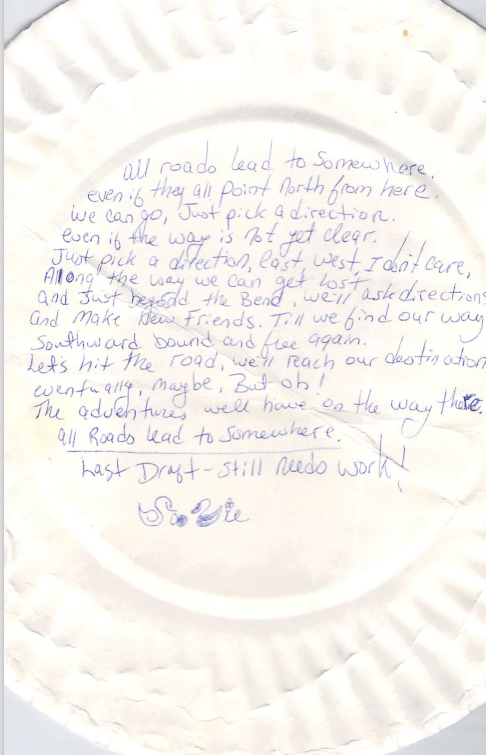 all roads lead to Somewhere.
even if they all point North from here.
we can go, Just pick a direction.
even if the way is Not yet clear.
Just pick a direction, East West, I don't care,
Along the way we can get lost
and Just beyond the Bend, we'll ask directions
and make New Friends. Till we find our way
Southward bound and free again.
Let's hit the road, we'll reach our destination
eventually, maybe, But oh!
The adventures we'll have on the way there.
all Roads lead to Somewhere.
Last Draft - Still Needs work!